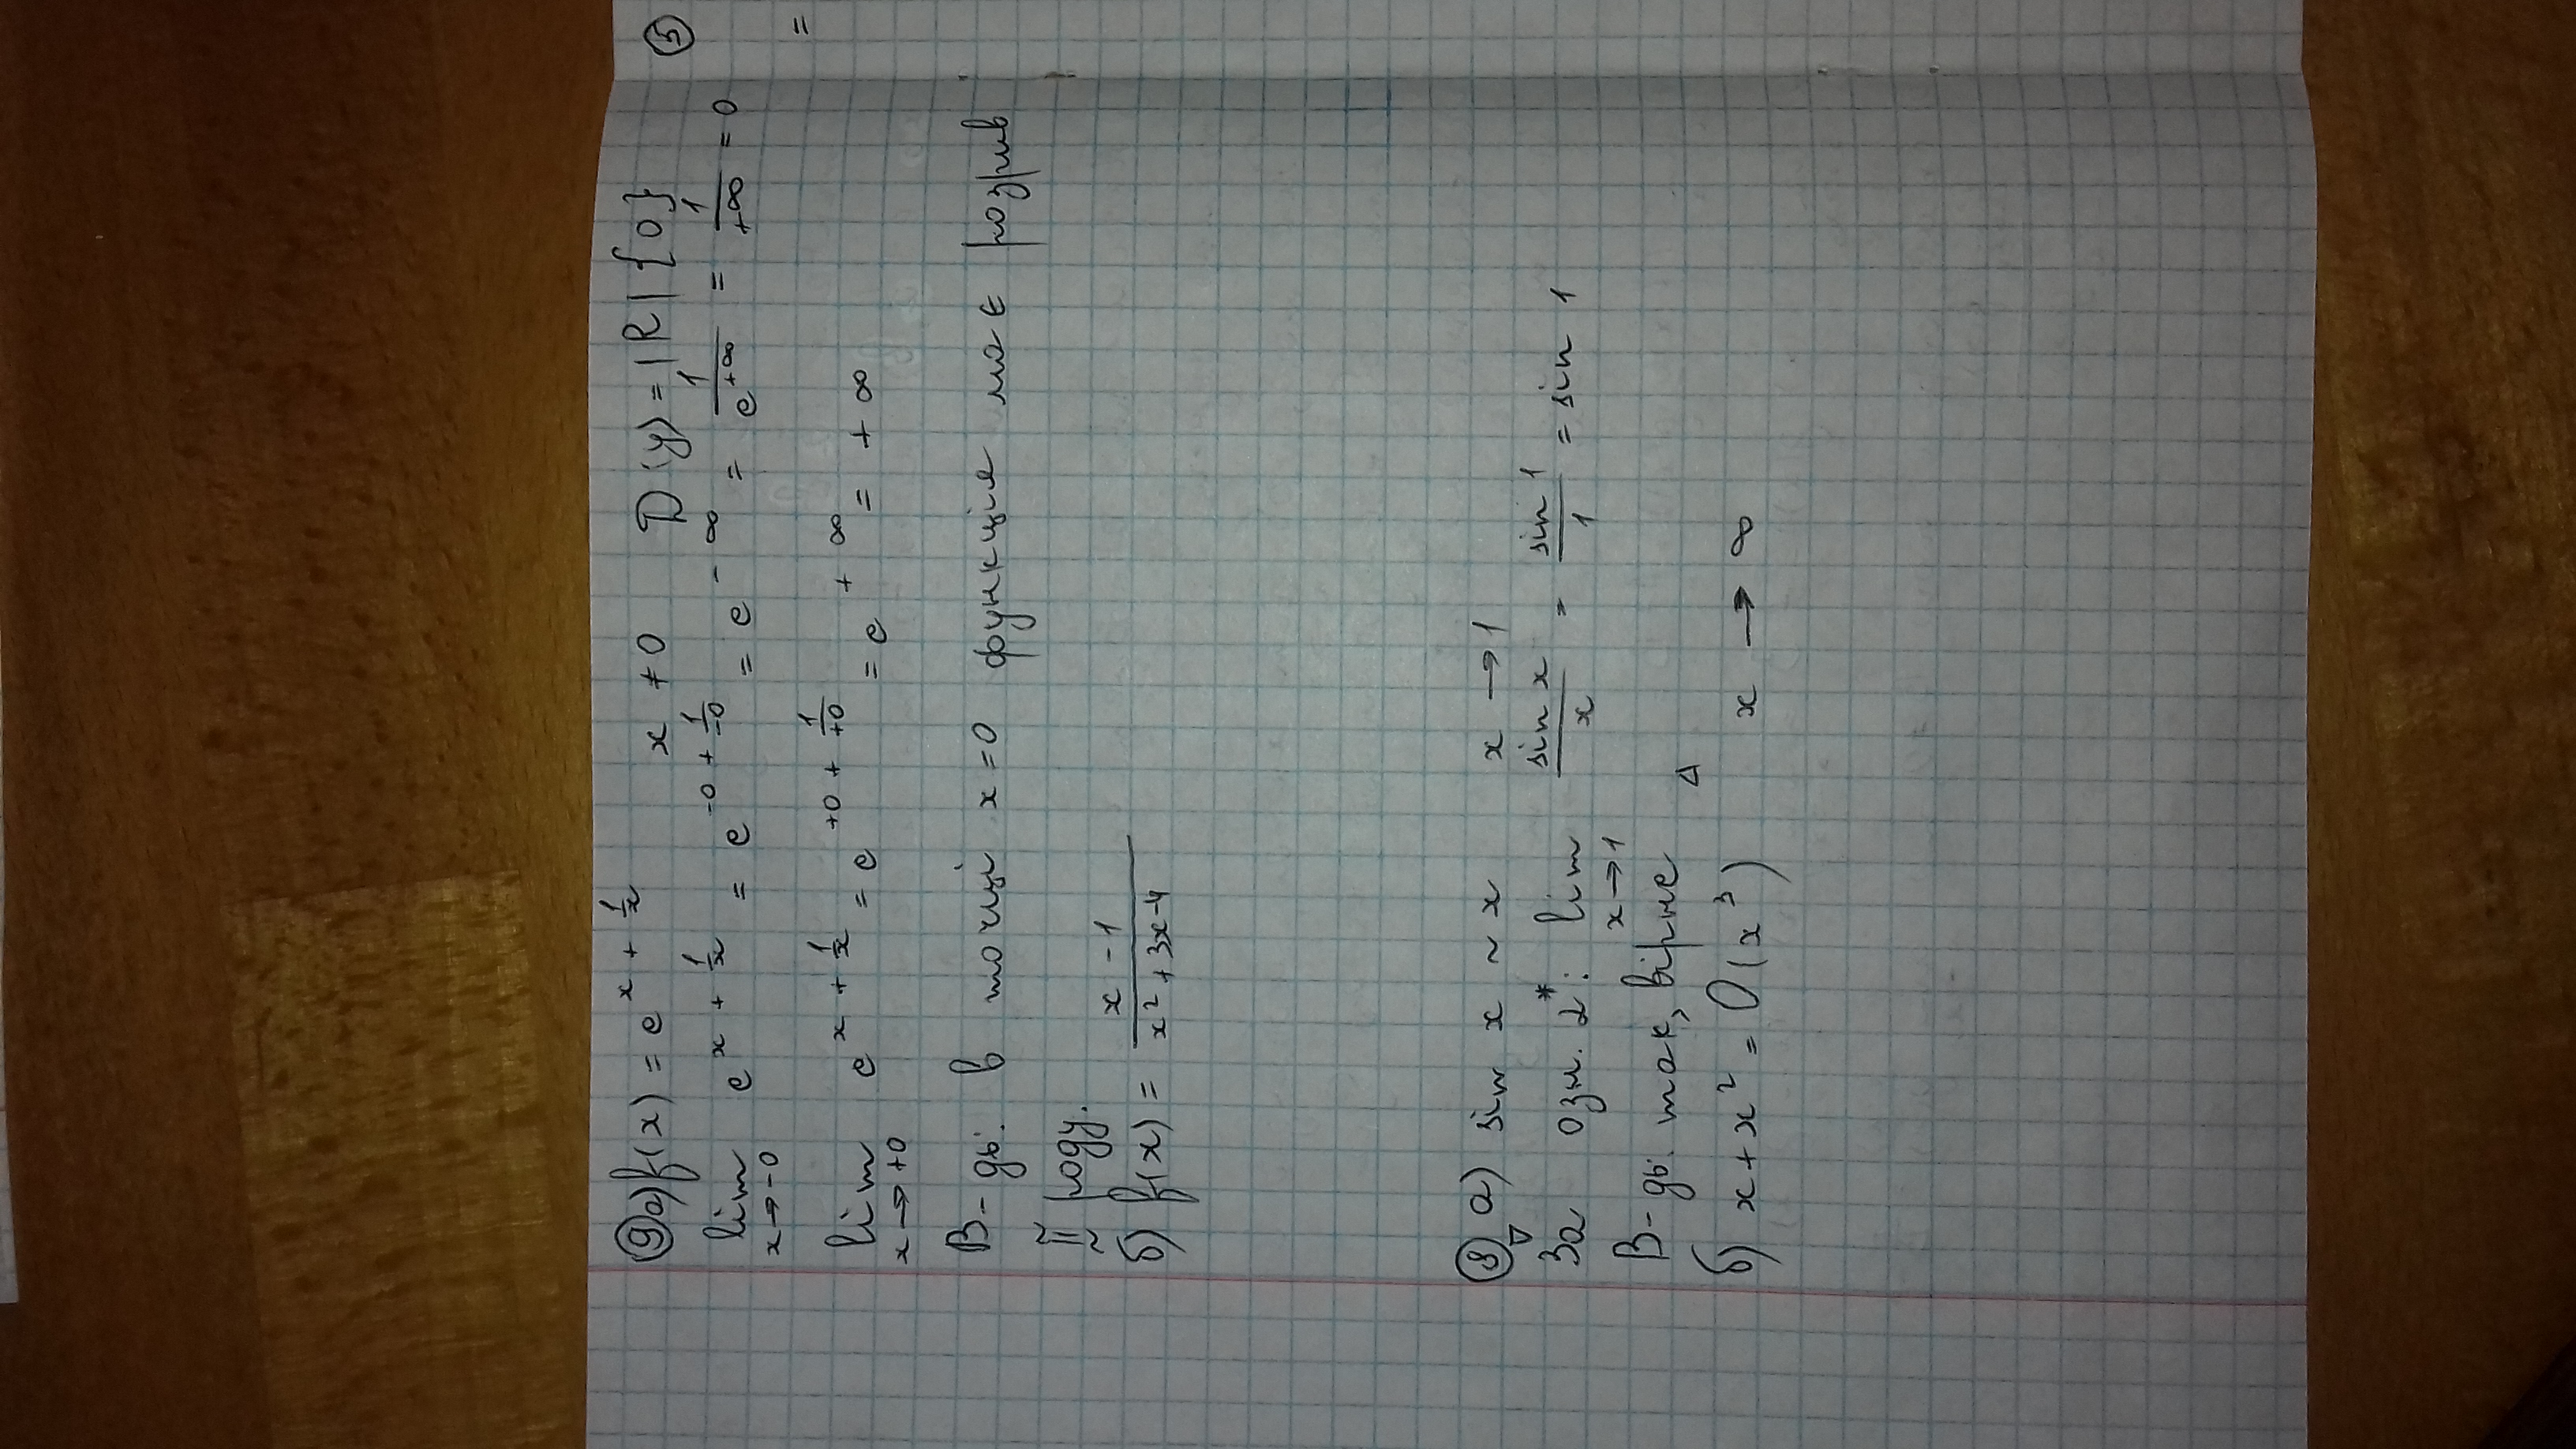 ⑨ а) f(x) = e^{x + 1/x} x ≠ 0 D(y) = ℝ | {0}
lim_{x→-0} e^{x + 1/x} = e^{-0 + 1/-0} = e^{-∞} = 1/e^{+∞} = 1/+∞ = 0
lim_{x→+0} e^{x + 1/x} = e^{+0 + 1/+0} = e^{+∞} = +∞
В-дь: в точці x=0 функція має розрив
II роду.
б) f(x) = (x-1)/(x²+3x-4)
⑧ а) sin x ~ x x → 1
За озн. 2*: lim_{x→1} sin x / x = sin 1 / 1 = sin 1
В-дь: так, вірне
б) x + x² = O(x³) x → ∞
⑤
=